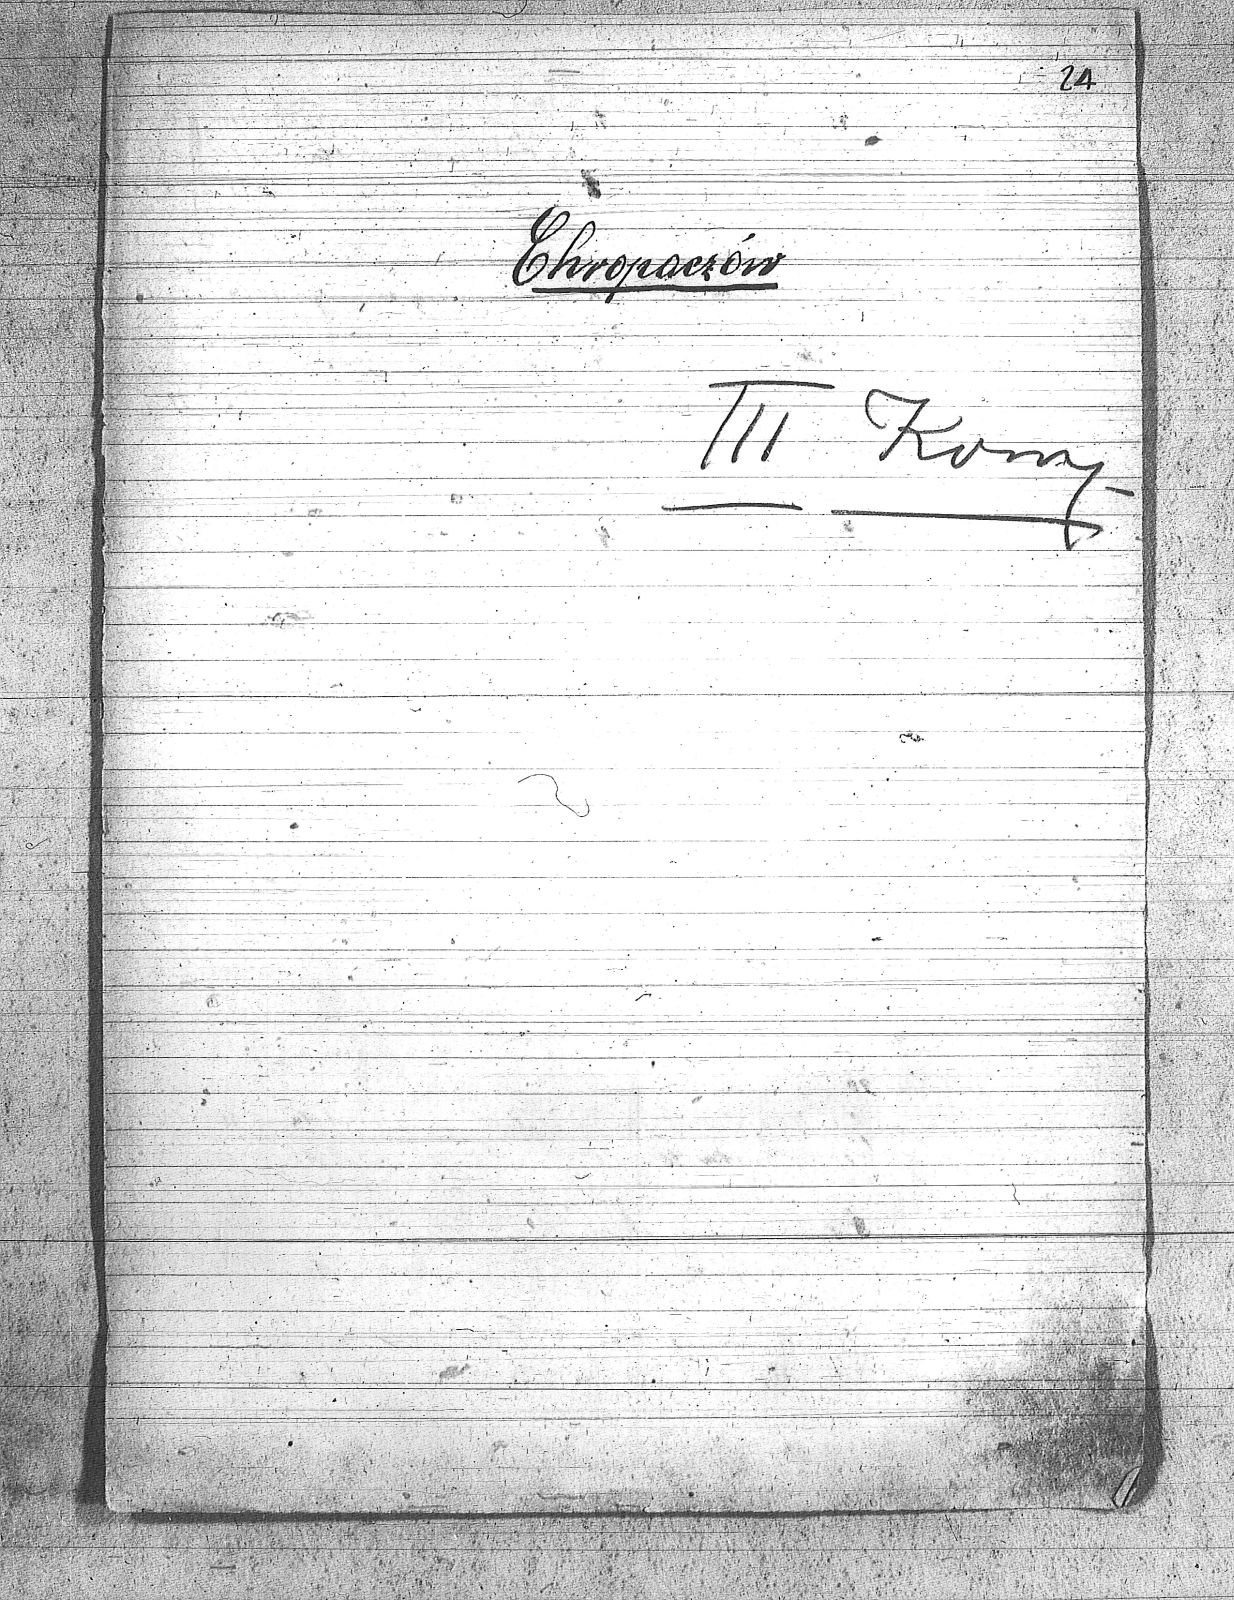 24
Chropaczów
III Komp.